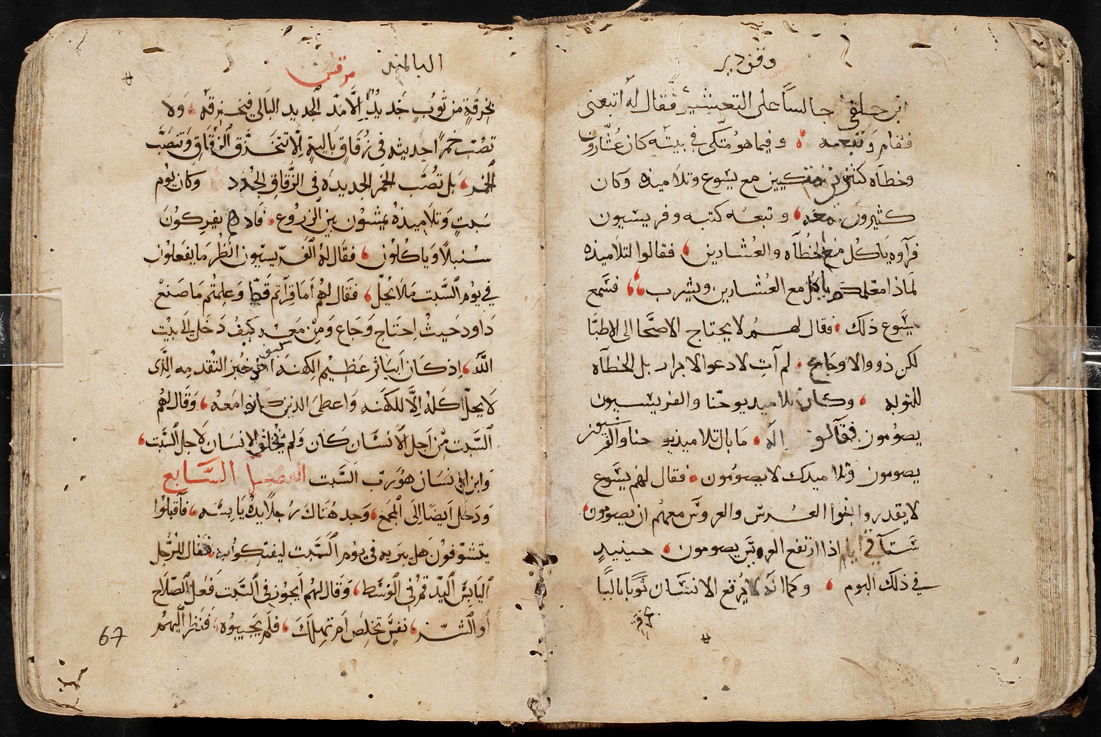 وقف دير
ابن حلفى جالساً على التعشير فقال له اتبعنى
فقام وتبعه وفيما هو متكى فى بيته كان عشارون
وخطاه كثيرون متكيين مع يسوع وتلاميذه وكان
كثيرون معه وتبعه كتبه وفريسيون
فرآوه ياكل مع الخطاه والعشارين فقالوا لتلاميذه
لماذا معلمكم ياكل مع العشارين ويشرب فسمع
يسوع ذلك فقال لهم لا يحتاج الاصحا الى الاطبا
لكن ذووا الاوجاع لم آت لادعوا الابرار بل الخطاه
للتوبه وكان تلاميذ يوحنا والفريسيون
يصومون فقالوا له ما بال تلاميذ يوحنا والفريسيون
يصومون وتلاميدك لا يصومون فقال لهم يسوع
لا يقدروا بنوا العرس والعروس معهم ان يصومون
ستاتى ايام اذا ارتفع العروس يصومون حينيد
فى ذلك اليوم وكما انه لا يرقع الانسان ثوبا باليا
البلمند
مرقس
بخرقة من ثوب جديد إلا مد الجديد البالي فخرقه ولا
تصب خمرا حديثه فى زقاق باليه لا تتخرق الزقاق وتنصب
الخمر بل تصب الخمر الحديده فى الزقاق الجدد وكان يوم
سبت وتلاميذه يمشون بين الزروع يفركون
سنبلا وياكلون فقال له الفريسيون انظر ما يفعلون
في يوم السبت ما لا يحل فقال لهم أما قرأتم قط وعلمتم ما صنع
داود حيث احتاج وجاع ومن معه كيف دخل الى بيت
الله اذ كان أبياثر عظيم الكهنه خبز التقدمه الذى
لا يحل كله إلا للكهنه واعطى الذين كانوا معه وقال لهم
السبت من اجل الانسان كان ولم يخلق الانسان لاجل السبت
وابن الانسان هو رب السبت الفصل السابع
ودخل ايضا الى المجمع وجد هناك رجلا يده يابسه فأقبلوا
يتشوفون هل يبريه في يوم السبت ليفتكوا به فقال للرجل
اليابس اليد قم في الوسط وقال لهم أيجوز في السبت فعل الصلاح
أو الشر نفس تخلص ام تهلك فلم يجيبوه فنظر اليهم
67